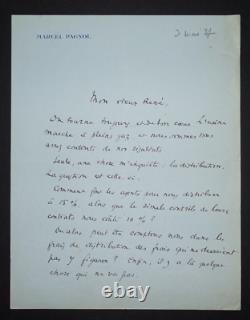 MARCEL PAGNOL
Mon vieux René,
On tourne toujours et dehors comme l'usine
marche à pleins gaz et nous sommes tous
assez contents de nos résultats.
Seule, une chose m'inquiète : la distribution.
La question est celle-ci :
Comment font les agents pour nous distribuer
à 15 % alors que le simple contrôle de leurs
contrats nous coûte 10 % ?
Ou alors peut-être comptons nous dans les
frais de distribution des frais qui ne devraient
pas y figurer ? Enfin, il y a là quelque
chose qui ne va pas.